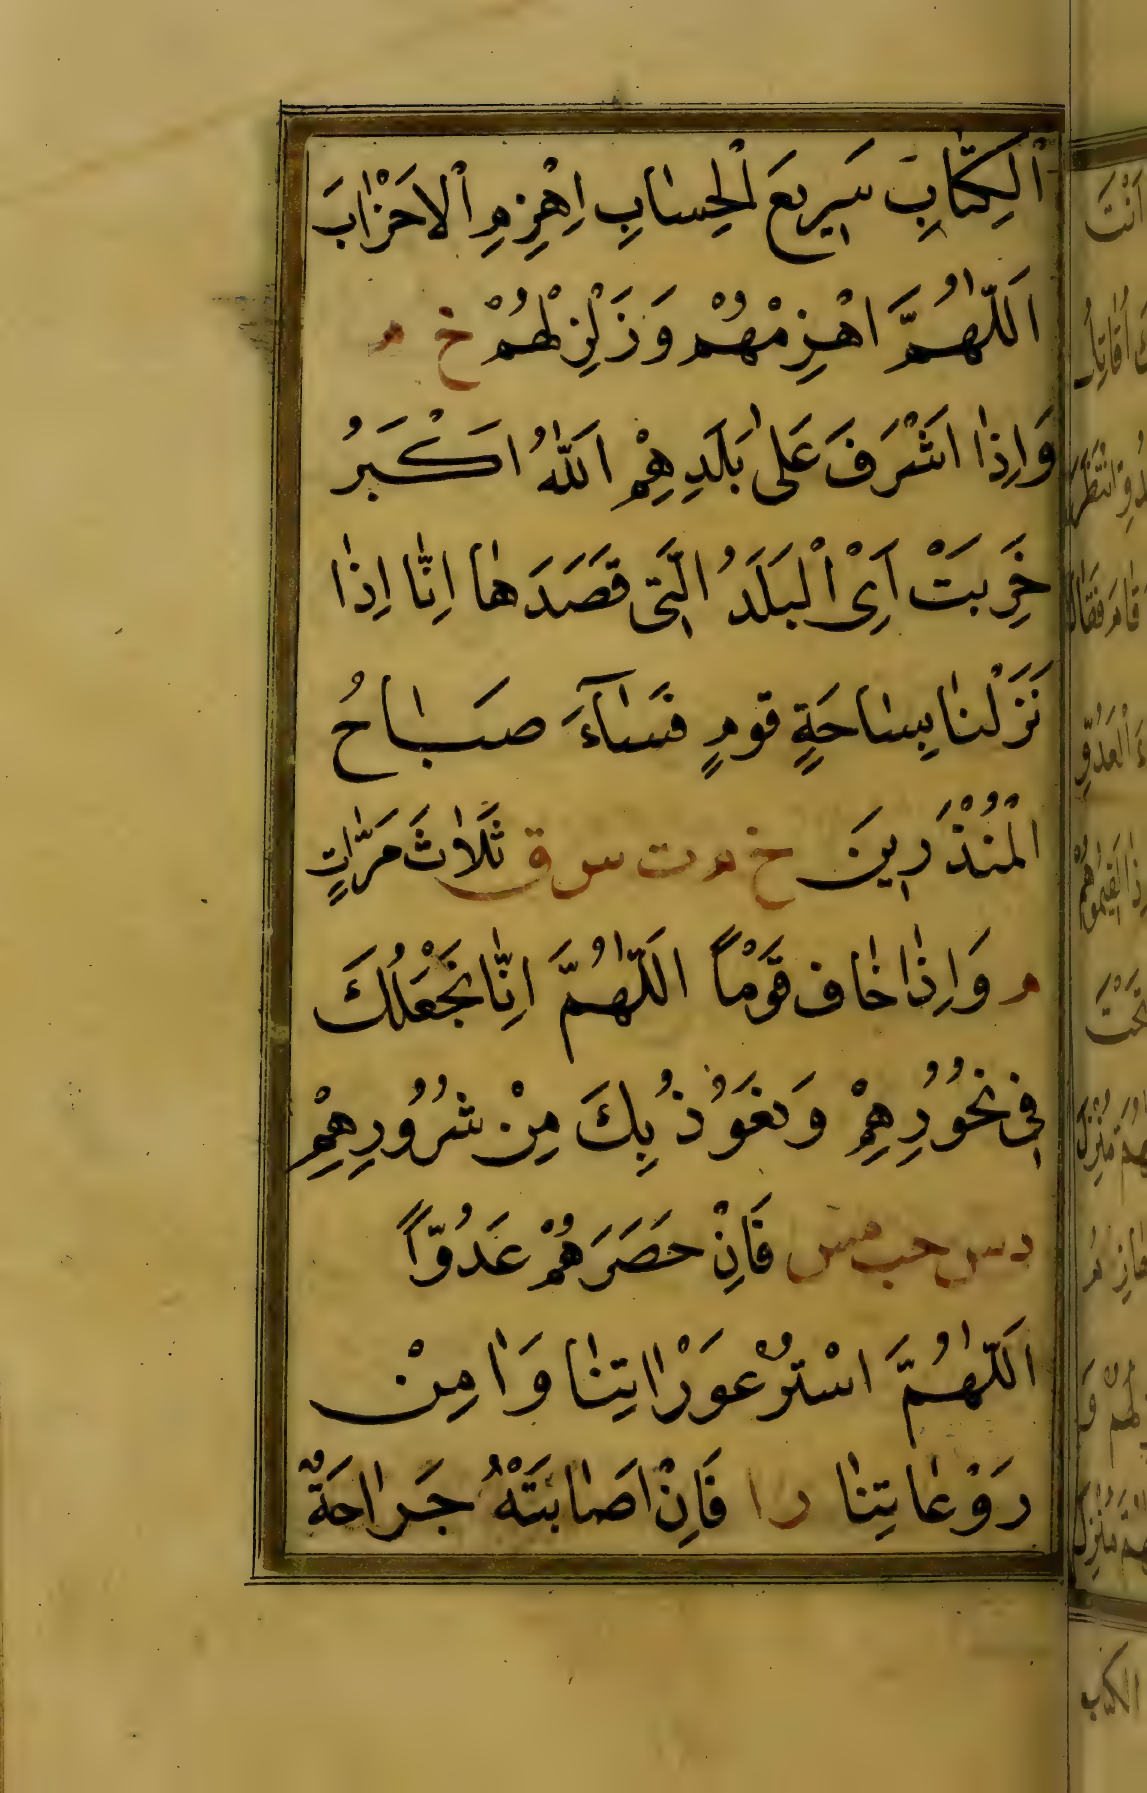 اَلْكِتَابِ سَرِيعَ الْحِسَابِ اِهْزِمِ الْاَحْزَابَ
اَللّٰهُمَّ اهْزِمْهُمْ وَزَلْزِلْهُمْ خ م
وَاِذَا اَشْرَفَ عَلٰى بَلَدِهِمْ اَللّٰهُ اَكْبَرُ
خَرِبَتْ اَىْ الْبَلَدُ الَّتِى قَصَدَهَا اِنَّا اِذَا
نَزَلْنَا بِسَاحَةِ قَومٍ فَسَاۤءَ صَبَاحُ
الْمُنْذَرِينَ خ م ت س ق ثَلَاثَ مَرَّاتٍ
م وَاِذَا خَاف قَوْمًا اَللّٰهُمَّ اِنَّا نَجْعَلُكَ
فِى نُحُوُرِهِمْ وَنَعَوُذُ بِكَ مِنْ شُرُوُرِهِمْ
د س حب مس فَاِنْ حَصَرَهُمْ عَدُوًّا
اَللّٰهُمَّ اسْتُرْ عَوْرَاتِنَا وَاٰمِنْ
رَوْعَاتِنَا ر ا فَاِنْ اَصَابَتْهُ جَرَاحَةٌ